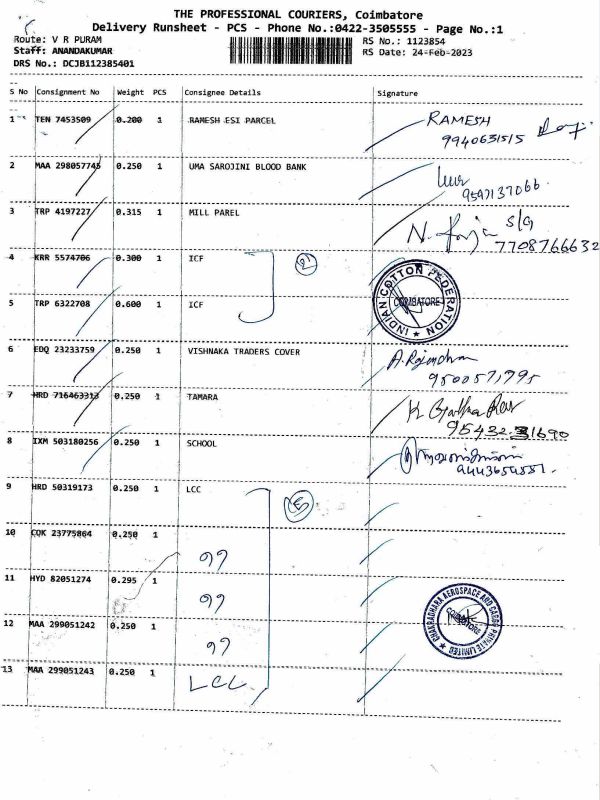 THE PROFESSIONAL COURIERS, Coimbatore
Delivery Runsheet - PCS - Phone No.:0422-3505555 - Page No.:1
Route: V R PURAM
RS No.: 1123854
Staff: ANANDAKUMAR
RS Date: 24-Feb-2023
DRS No.: DCJB112385401
S No Consignment No Weight PCS Consignee Details Signature
1 TEN 7453509 0.200 1 RAMESH ESI PARCEL RAMESH
9940631515
2 MAA 298057745 0.250 1 UMA SAROJINI BLOOD BANK
9597137066
3 TRP 4197227 0.315 1 MILL PAREL N. Raja S/G
7708766632
4 KRR 5574706 0.300 1 ICF 2
INDIAN COTTON FEDERATION
COIMBATORE
5 TRP 6322708 0.600 1 ICF
6 EDQ 23233759 0.250 1 VISHNAKA TRADERS COVER
9500571795
7 HRD 716463313 0.250 1 TAMARA
95432 31690
8 IXM 503180256 0.250 1 SCHOOL
9443654551
9 HRD 50319173 0.250 1 LCC 5
10 COK 23775864 0.250 1
11 HYD 82051274 0.295 1
CHAKRADHARA AEROSPACE AND CARGO PRIVATE LIMITED
COIMBATORE
12 MAA 299051242 0.250 1
13 MAA 299051243 0.250 1 LCC